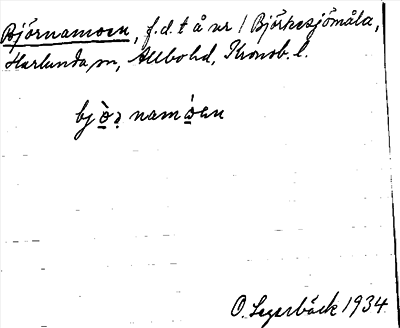 Björnamoen, f.d. t å nr 1 Björkesjömåla,
Härlunda sn, Allbo hd, Kronob. l.
bjò̱ṛnamò̱en
O. Lagerbäck 1934